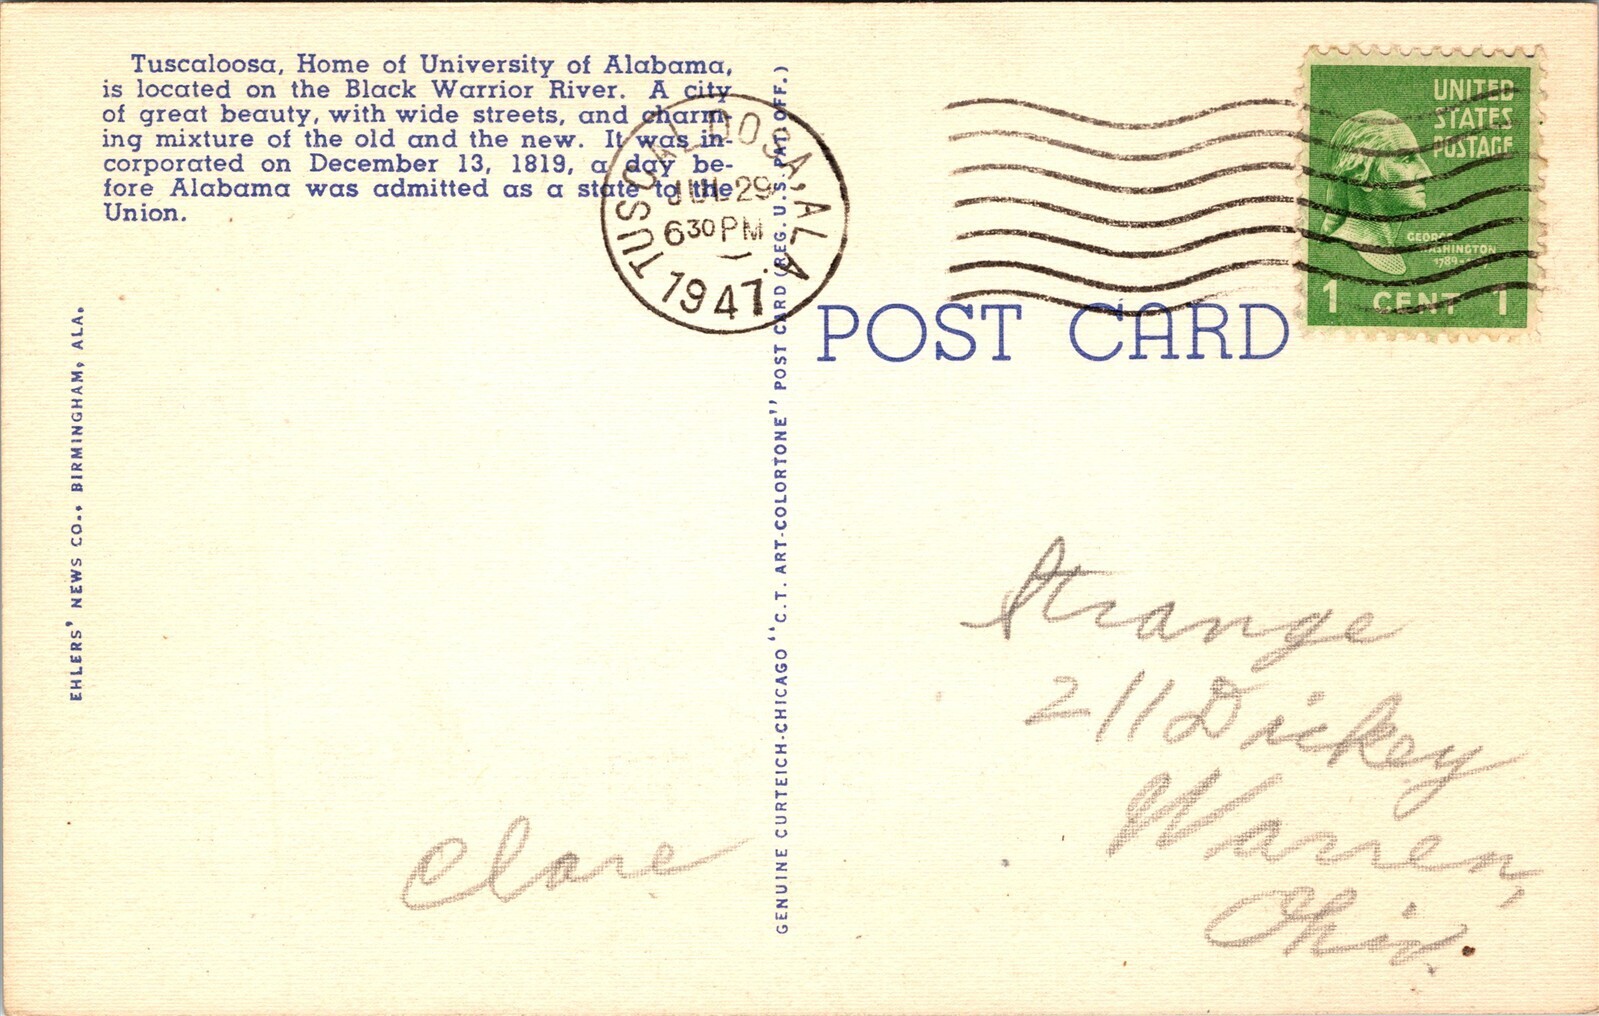 Tuscaloosa, Home of University of Alabama,
is located on the Black Warrior River. A city
of great beauty, with wide streets, and charm-
ing mixture of the old and the new. It was in-
corporated on December 13, 1819, a day be-
fore Alabama was admitted as a state to the
Union.
EHLERS' NEWS CO., BIRMINGHAM, ALA.
TUSCALOOSA, ALA.
JUL 29
630 PM
1947
GENUINE CURTEICH-CHICAGO "C. T. ART-COLORTONE" POST CARD (REG. U. S. PAT. OFF.)
POST CARD
UNITED
STATES
POSTAGE
GEORGE
WASHINGTON
1789-1797
1 CENT 1
Strange
211 Dickey
Warren,
Ohio.
Clare